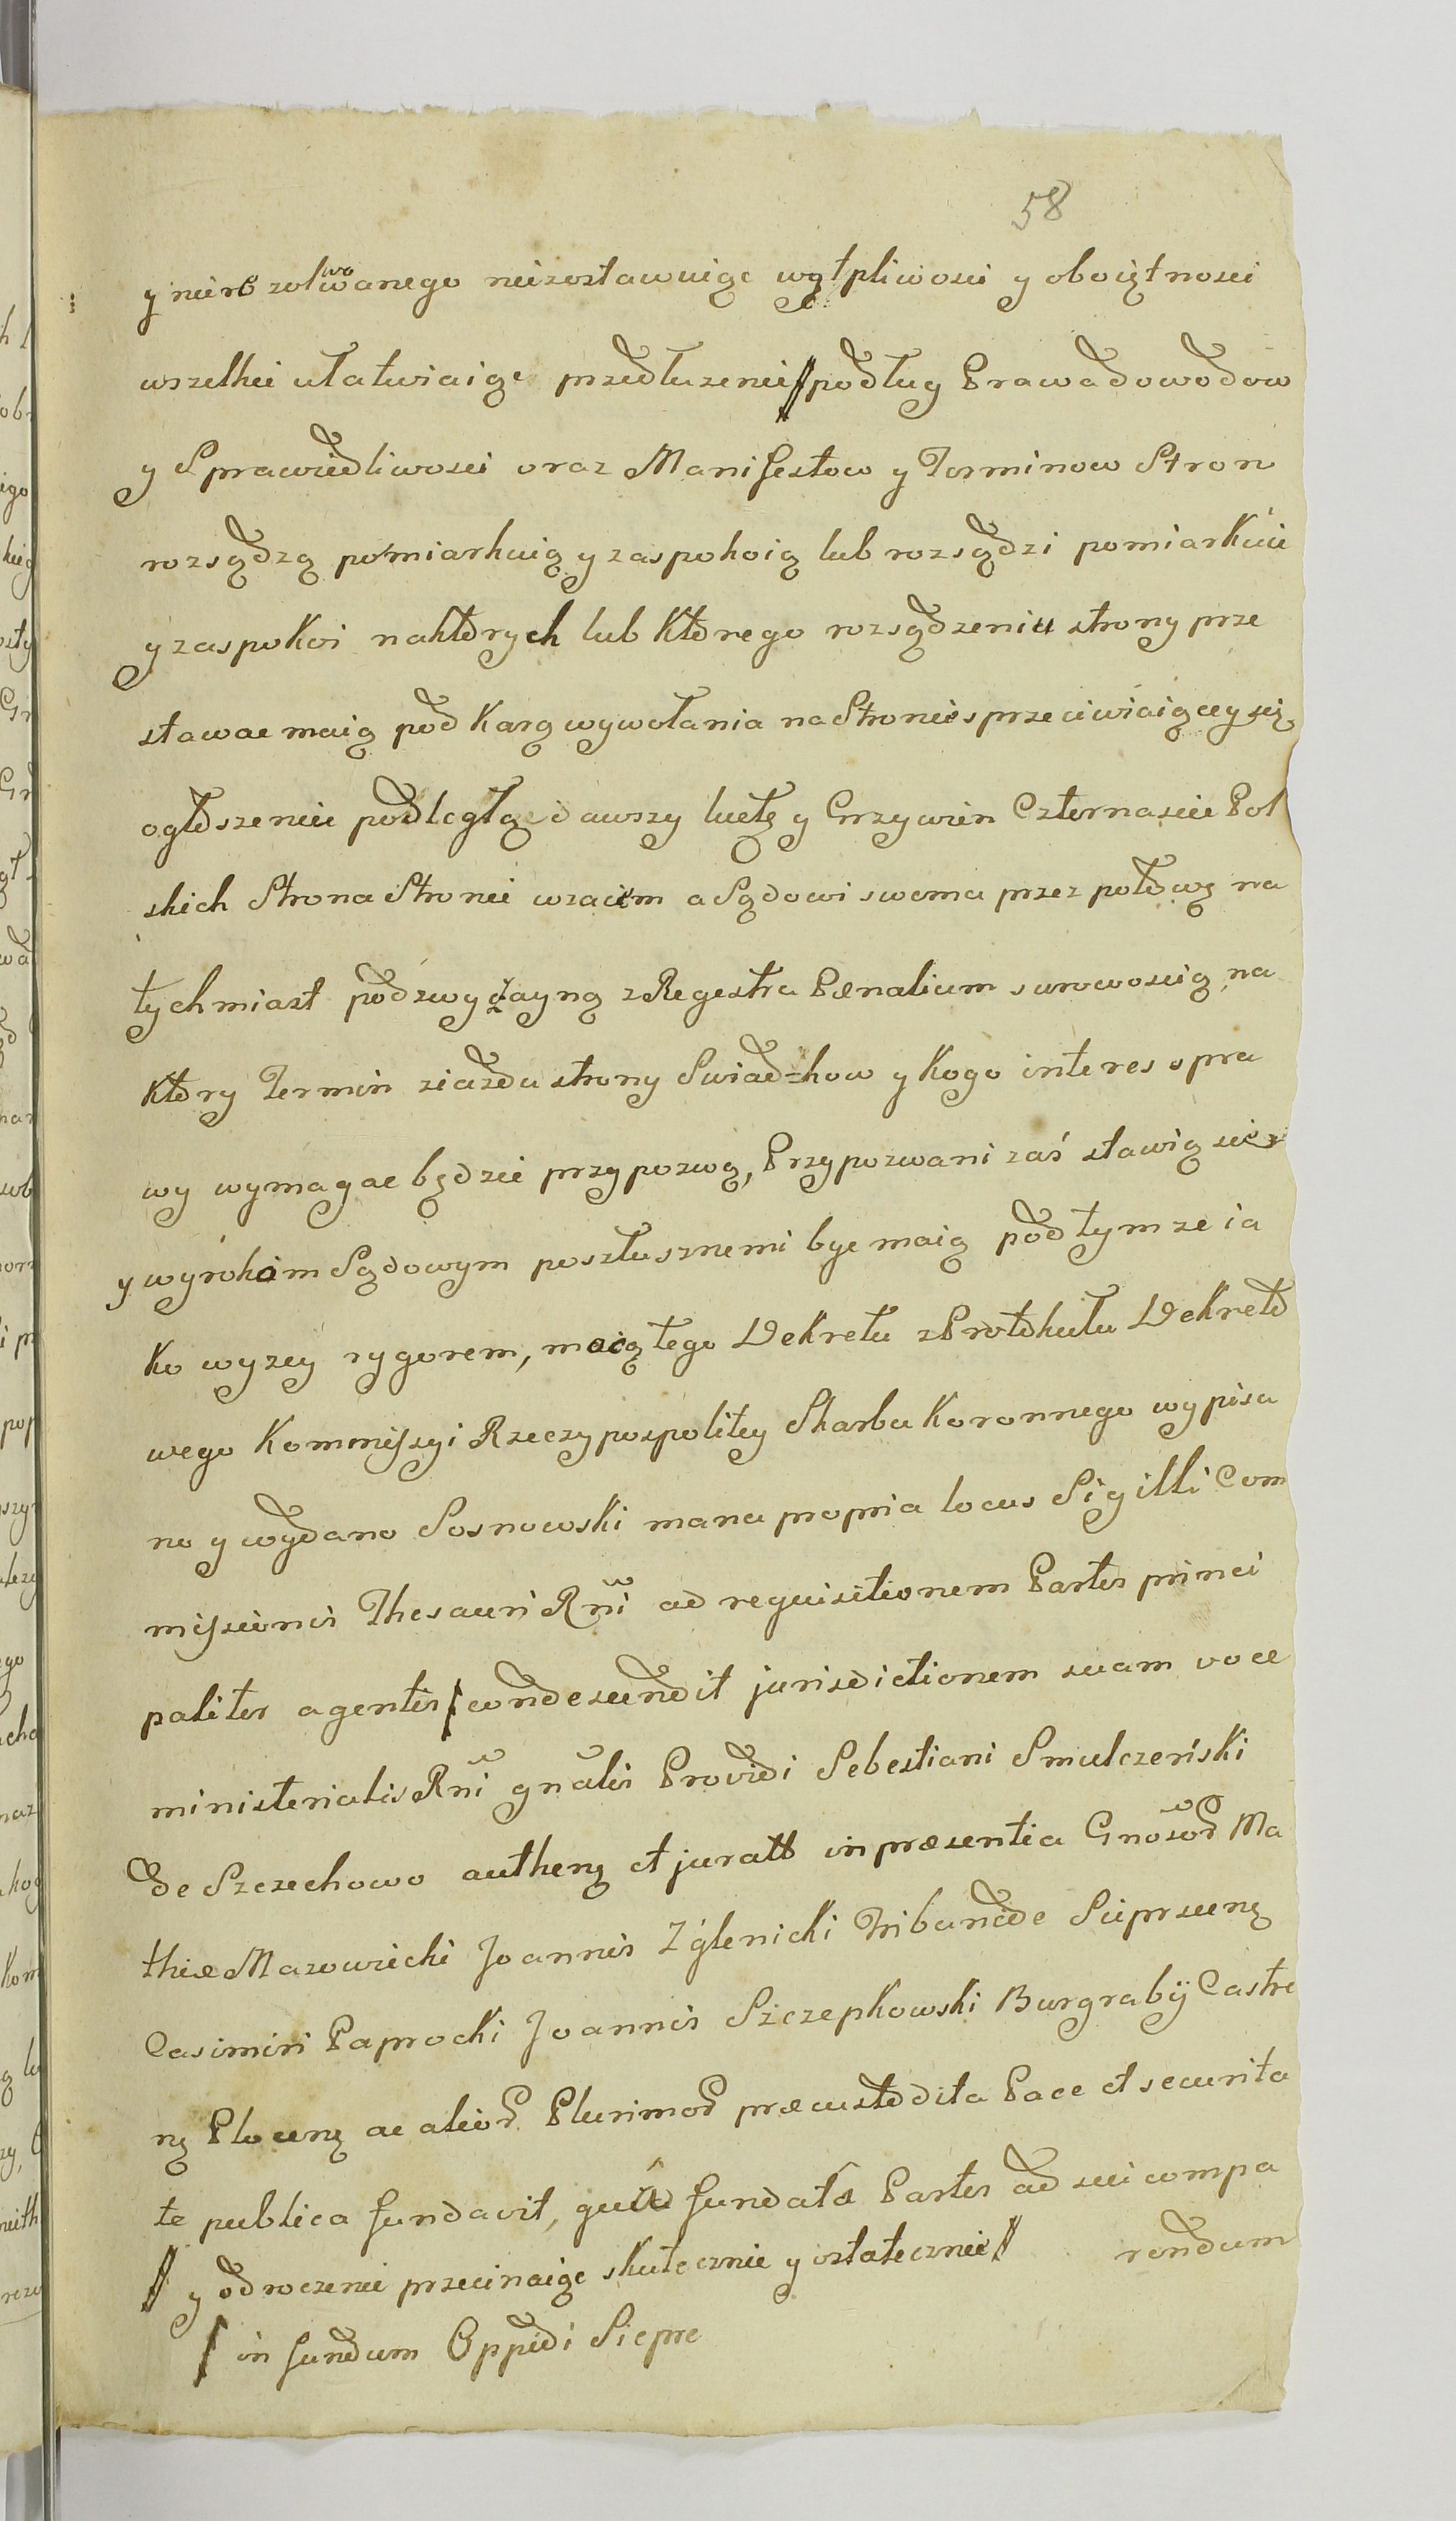 58
y nierozolwowanego niezostawuiąc wątpliwosci y oboiętnosci
wszelkie ułatwiaiąc przedłuzenie // podług Prawa dowodow
y Sprawiedliwosci oraz Manifestow y Terminow Stron
rozsądzą pomiarkuią y zaspokoią lub rozsądzi pomiarkuie
y zaspokoi naktorych lub ktorego rozsądzeniu strony prze
stawac maią pod Karą wywołania na Stronie sprzeciwiaiącey się
ogłoszenie podległą dawszy luetę y Grzywien Czternascie Pol
skich Strona Stronie wzaiem a Sądowi swemu przez połowę na
tychmiast pod zwyczayną z Regestra Pænalium surowoscią, na
ktory Termin ziazdu strony Swiadzkow y Kogo interes spra
wy wymagac będzie przypozwą, Przypozwani zaś stawią się
y wyrokom Sądowym posztusznemi byc maią pod tym ze ia
ko wyzey rygorem, mocą tego Dekretu z Protokułu Dekreto
wego Kommissyi Rzeczypospolitey Skarbu Koronnego wypisa
no y wydano Sosnowski manu propria locus Sigilli Com
missionis Thesauri Rñi ad requisitionem Partis princi
paliter agentis / condescendit jurisdictionem suam voce
ministerialis Rñi gñalis Providi Sebestiani Smulczeński
de Szczechowo authenę et juratt in præsentia Gnosor Ma
thiæ Mazowiecki Joannis Zglenicki Tribuncide Sieprscenę
Casimiri Paprocki Joannis Szczepkowski Burgrabÿ Castre
nę Plocenę ac alior Plurimor præcustodita Pace et securita
te publica fundavit, quâ fundatâ Partes ad sui compa
rendum
// y odroczenie przecinaiąc skutecznie y ostatecznie //
/ in fundum Oppidi Siepre